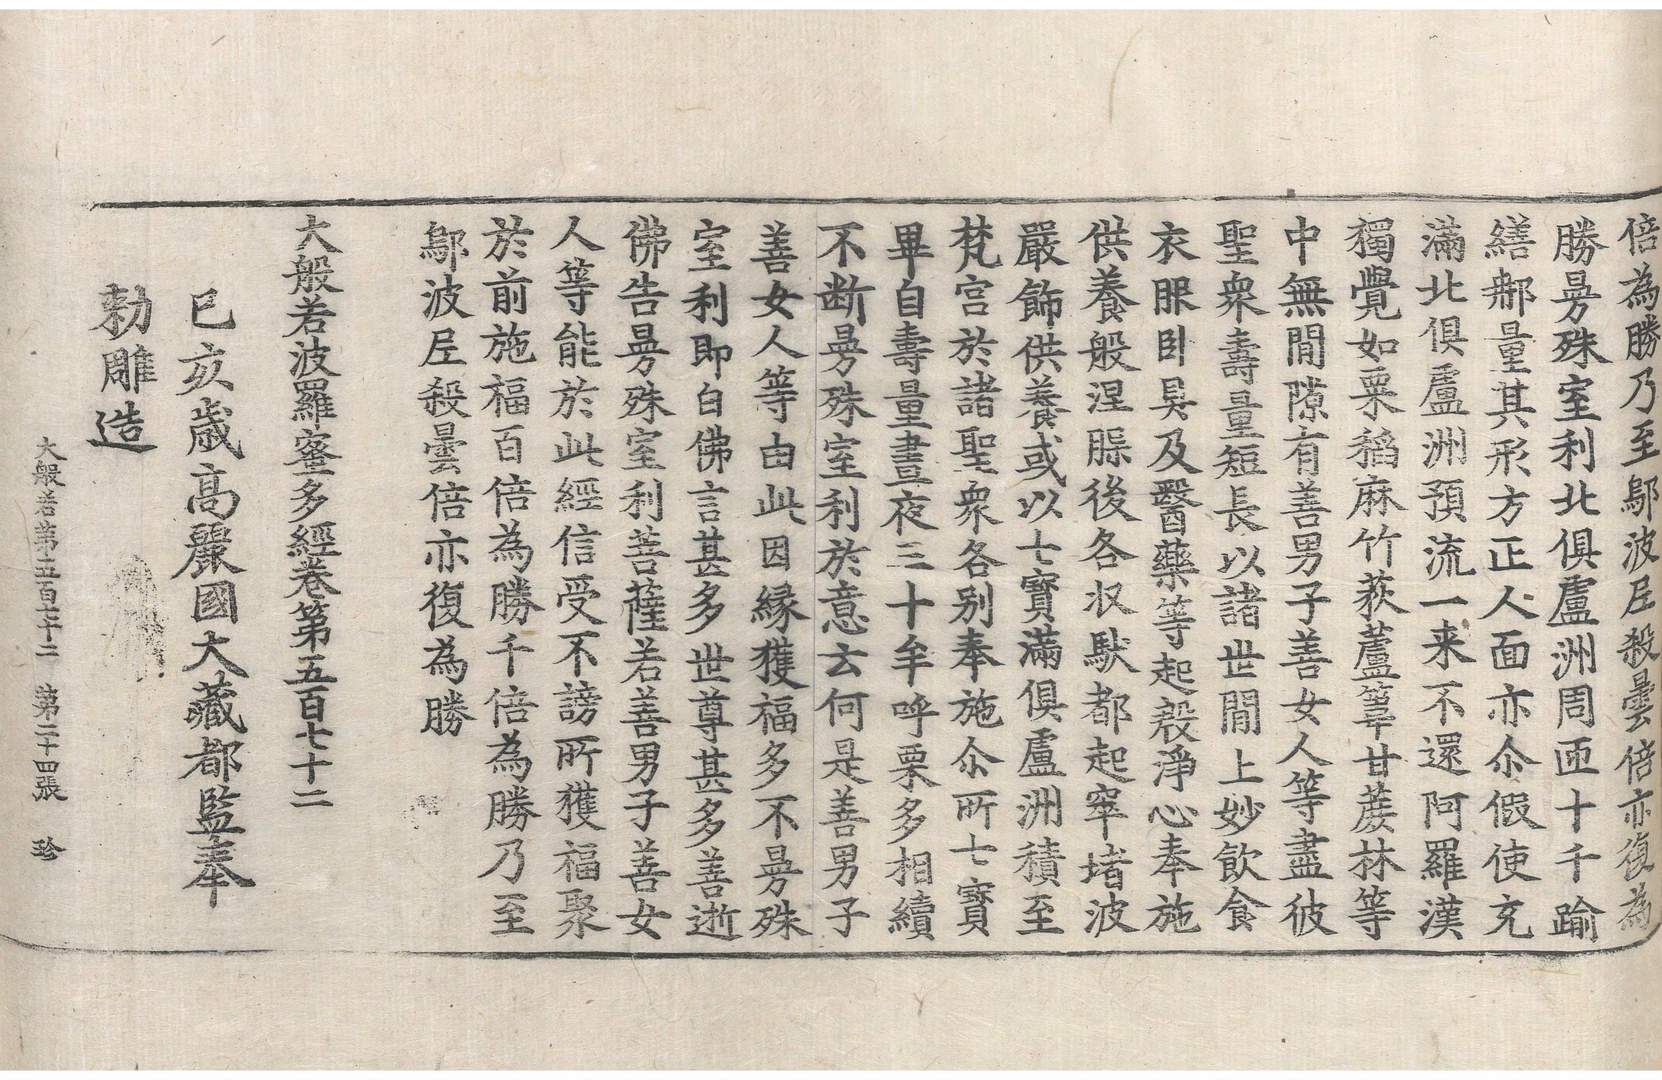 倍為勝乃至鄔波尼殺曇倍亦復為
勝曼殊室利北俱盧洲周帀十千踰
繕那量其形方正人面亦尒假使充
滿北俱盧洲預流一来不還阿羅漢
獨覺如粟稻麻竹荻蘆葦甘蔗林等
中無閒隙有善男子善女人等盡彼
聖衆壽量短長以諸世閒上妙飲食
衣服卧具及醫藥等起殷淨心奉施
供養般涅脲後各収馱都起窣堵波
嚴飾供養或以七寳滿俱盧洲積至
梵宫於諸聖衆各别奉施尒所七寳
畢自壽量晝夜三十牟呼栗多相續
不断曼殊室利於意云何是善男子
善女人等由此因縁獲福多不曼殊
室利即白佛言甚多世尊甚多善逝
佛告曼殊室利菩薩若善男子善女
人等能於此經信受不謗所獲福聚
於前施福百倍為勝千倍為勝乃至
鄔波尼殺曇倍亦復為勝
大般若波羅蜜多經卷第五百七十二
己亥歲高麗國大藏都監奉
勅雕造
大般若第五百七十二 第二十四張 珍